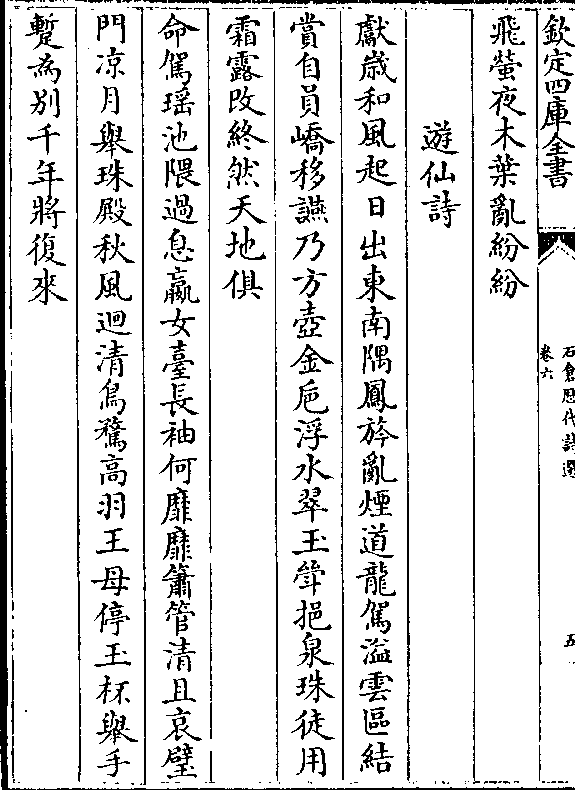 欽定四庫全書
石倉厯代詩選
卷六
五
飛螢夜木葉亂紛紛
遊仙詩
獻歲和風起日出東南隅鳳斾亂煙道龍駕溢雲區結
賞自員嶠移讌乃方壺金巵浮水翠玉斝挹泉珠徒用
霜露改終然天地俱
命駕瑶池隈過息嬴女臺長袖何靡靡簫管清且哀璧
門凉月舉珠殿秋風迴清鳥騖高羽王母停玉杯舉手
蹔為别千年將復來